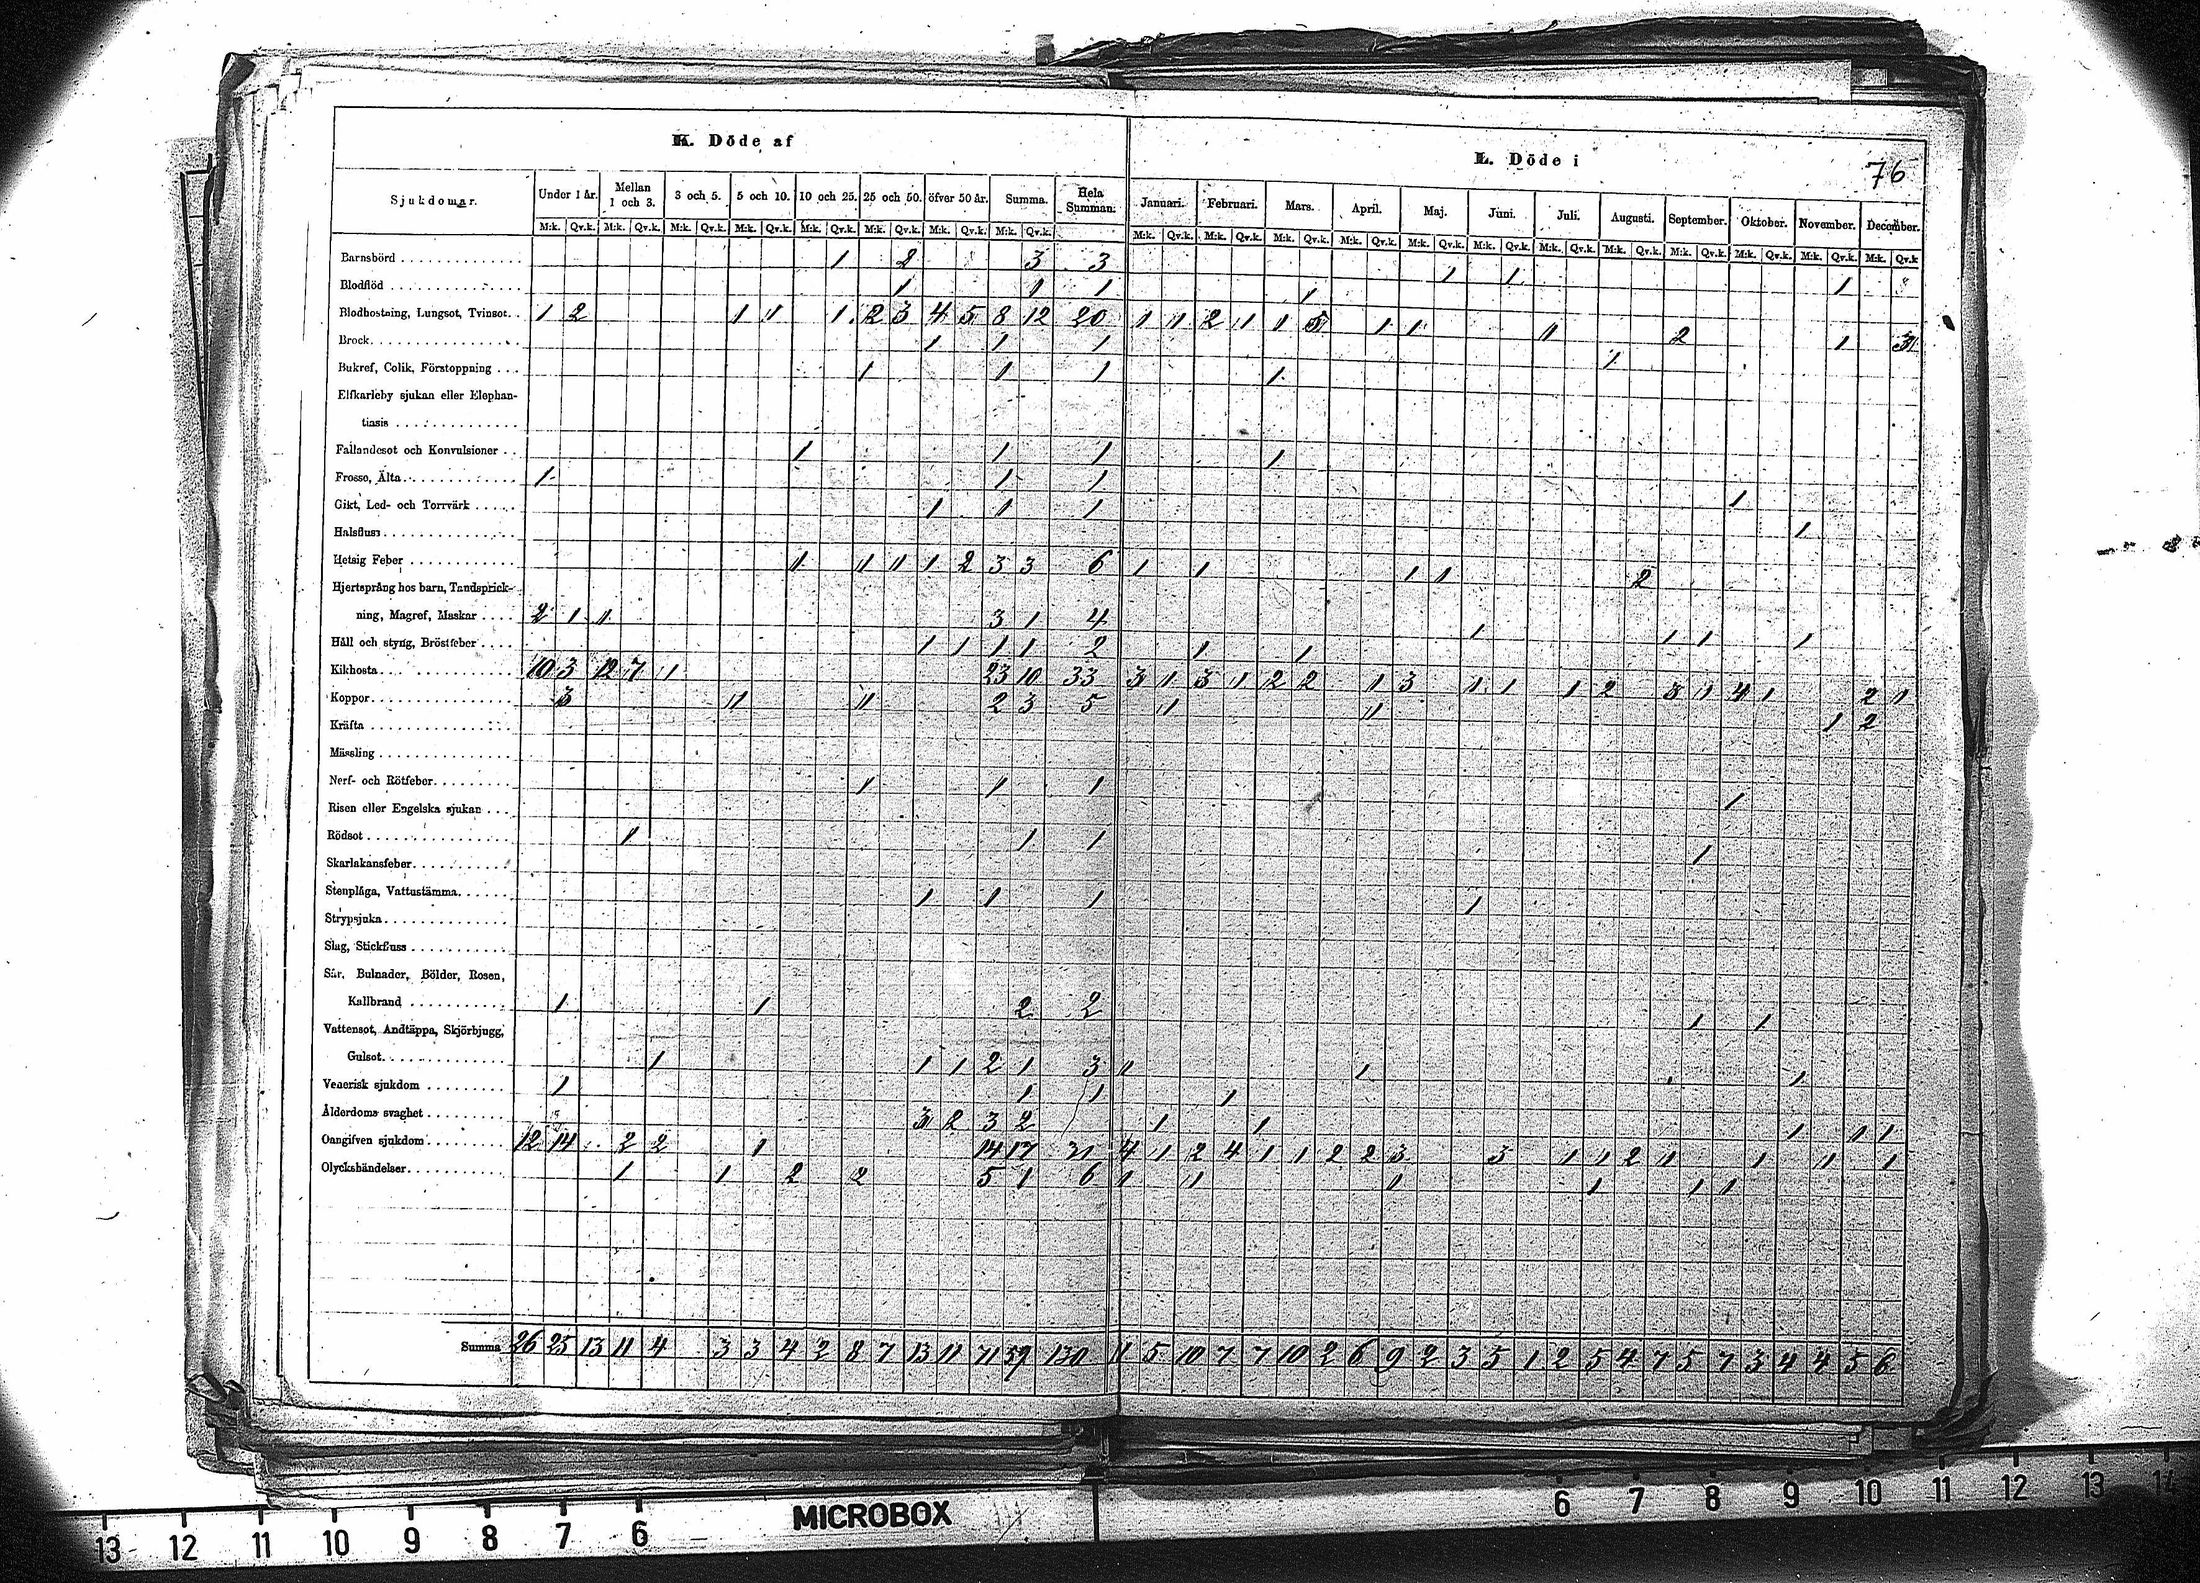 K. Döde af
L. Döde i
76
Sjukdomar. Under 1 år. Mellan 1 och 3. 3 och 5. 5 och 10. 10 och 25. 25 och 50. öfver 50 år. Summa. Hela Summan.
Januari. Februari. Mars. April. Maj. Juni. Juli. Augusti. September. Oktober. November. December.
M:k. Qv.k. M:k. Qv.k. M:k. Qv.k. M:k. Qv.k. M:k. Qv.k. M:k. Qv.k. M:k. Qv.k. M:k. Qv.k.
M:k. Qv.k. M:k. Qv.k. M:k. Qv.k. M:k. Qv.k. M:k. Qv.k. M:k. Qv.k. M:k. Qv.k. M:k. Qv.k. M:k. Qv.k. M:k. Qv.k. M:k. Qv.k. M:k. Qv.k
Barnsbörd 1 2 3 3 1 1 1
Blodflöd 1 1 1 1
Blodhostning, Lungsot, Tvinsot 1 2 1 1 1 2 3 4 5 8 12 20 1 1 2 1 1 5 1 1 1 2 1 3
Brock 1 1 1 1
Bukref, Colik, Förstoppning 1 1 1 1
Elfkarleby sjukan eller Elephan-
tiasis
Fallandesot och Konvulsioner 1 1 1 1
Frosso, Älta 1 1 1 1
Gikt, Led- och Torrvärk 1 1 1 1
Halsfluss
Hetsig Feber 1 1 1 1 2 3 3 6 1 1 1 1 2
Hjertsprång hos barn, Tandsprick-
ning, Magref, Maskar 2 1 1 3 1 4 1 1 1 1
Håll och styng, Bröstfeber 1 1 1 1 2 1 1
Kikhosta 10 3 12 7 1 23 10 33 3 1 3 1 2 2 1 3 1 1 1 2 3 1 4 1 2 1
Koppor 3 1 1 2 3 5 1 1 1 2
Kräfta
Mässling
Nerf- och Rötfeber 1 1 1 1
Risen eller Engelska sjukan
Rödsot 1 1 1 1
Skarlakansfeber
Stenplåga, Vattustämma 1 1 1 1
Strypsjuka
Slag, Stickfluss
Sår, Bulnader, Bölder, Rosen,
Kallbrand 1 1 2 2 1 1
Vattensot, Andtäppa, Skjörbjugg,
Gulsot 1 1 1 2 1 3 1 1 1
Venerisk sjukdom 1 1 1 1
Ålderdoms svaghet 3 2 3 2 1 1 1 1 1
Oangifven sjukdom 12 14 2 2 1 14 17 31 4 1 2 4 1 1 2 2 3 3 1 1 2 1 1 1 1
Olyckshändelser 1 1 2 2 5 1 6 1 1 1 1 1 1
Summa 26 25 13 11 4 3 3 4 2 8 7 13 11 71 59 130 11 5 10 7 7 10 2 6 9 2 3 5 1 2 5 4 7 5 7 3 4 4 5 6
MICROBOX
13 12 11 10 9 8 7 6
6 7 8 9 10 11 12 13 14